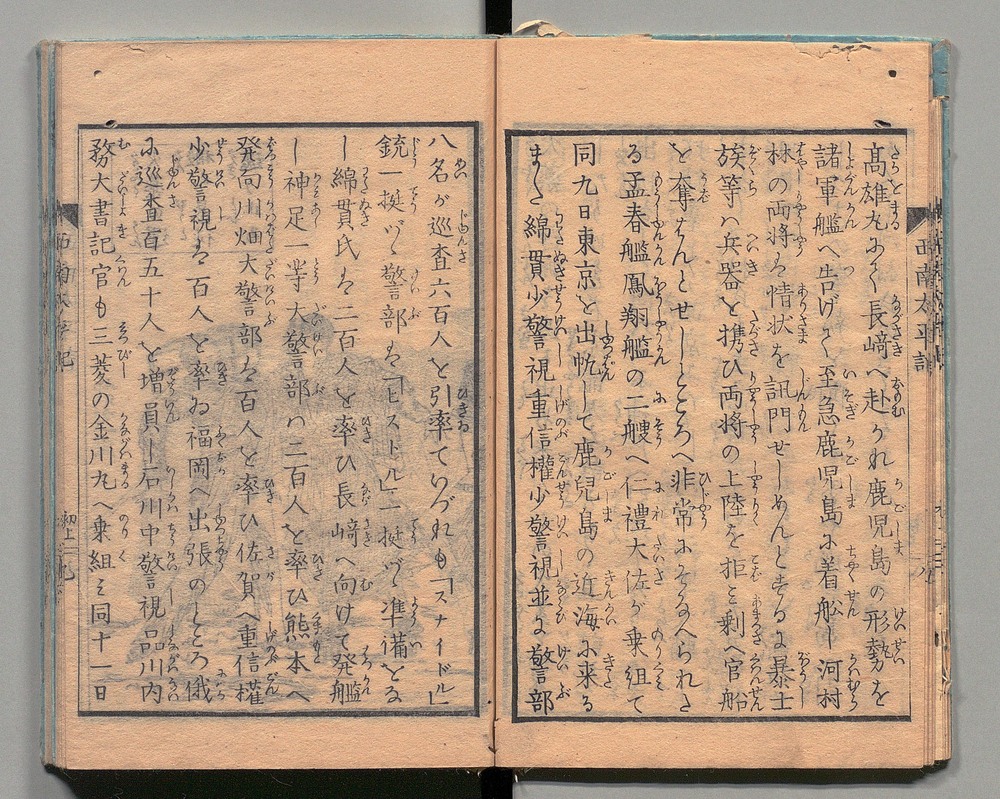 髙雄丸ふて長﨑へ赴かれ鹿児島の形勢を
諸軍艦へ告げて至急鹿児島に着舩し河村
林の両将も情状を訊問せしめんとするに暴士
族等ハ兵器を携ひ両将の上陸を拒ミ剰へ官船
を奪はんとせしところへ非常にそなへられた
る孟春艦鳳翔艦の二艘へ仁禮大佐が乗組て
同九日東京を出帆して鹿兒島の近海に来る
また綿貫少警視重信權少警視並に警部
八名が巡査六百人を引率ていづれも「スナイドル」
銃一挺ヅヽ警部は「ピストル」一挺ヅヽ凖備をな
し綿貫氏は二百人を率ひ長﨑へ向けて発艦
し神足一等大警部ハ二百人を率ひ熊本へ
発向川畑大警部は百人を率ひ佐賀へ重信權
少警視は百人を率ゐ福岡へ出張のところ俄
に巡査百五十人を増員し石川中警視品川内
務大書記官も三菱の金川丸へ乗組ミ同十一日
西南太平記
初上
九